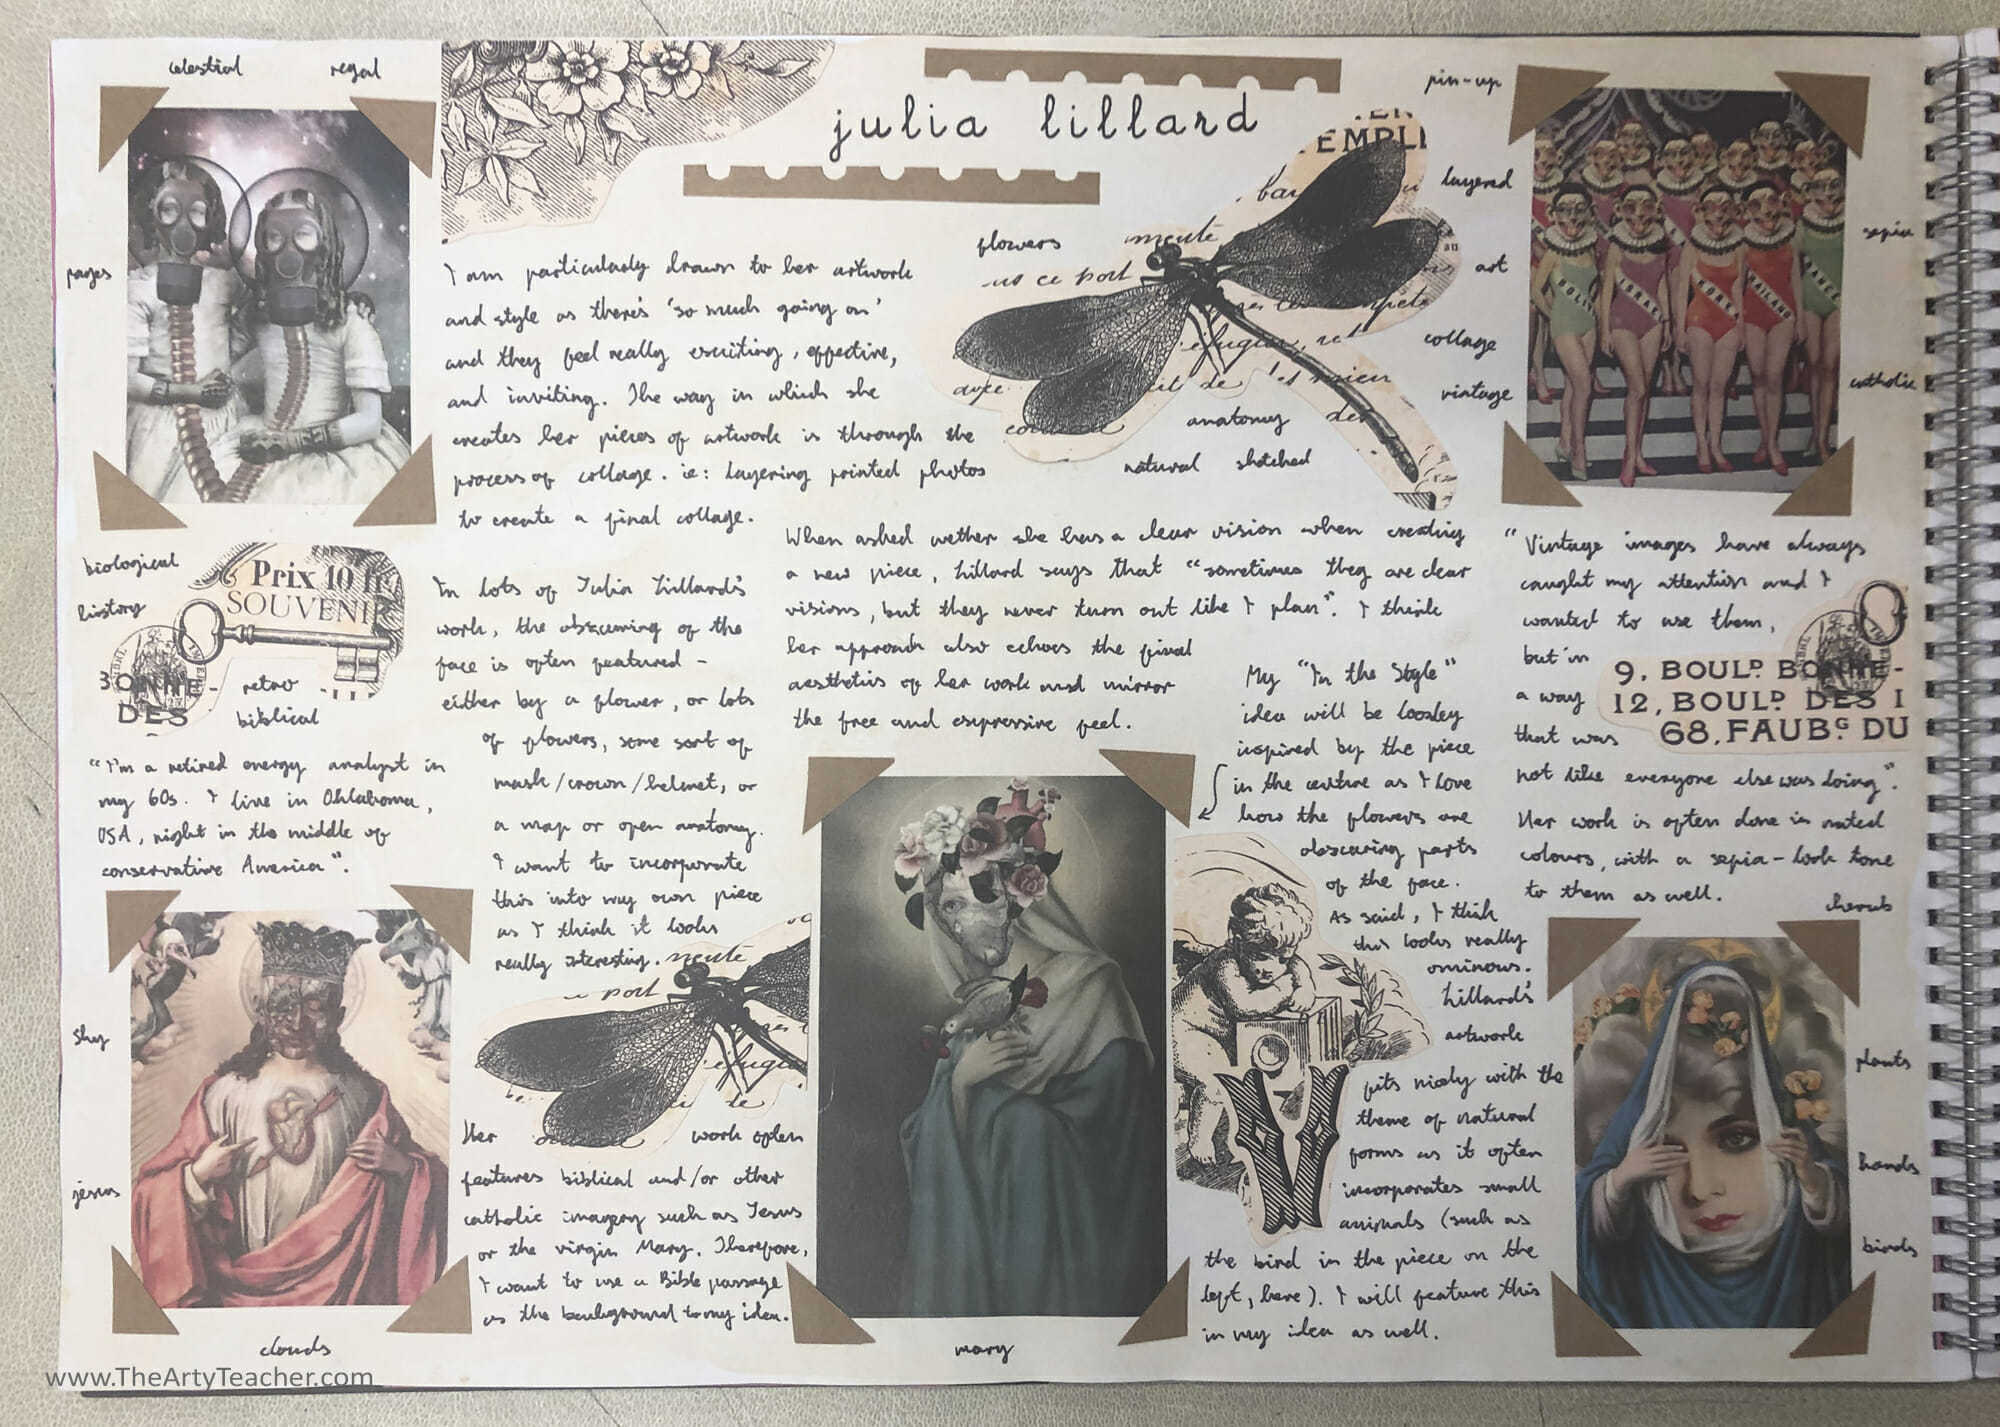 celestial regal
julia lillard
pin-up
layered
sepia
flowers
art
pages
collage
catholic
vintage
anatomy
natural sketched
I am particularly drawn to her artwork
and style as there's 'so much going on'
and they feel really exciting, effective,
and inviting. The way in which she
creates her pieces of artwork is through the
process of collage. ie: layering printed photos
to create a final collage.
TEMPLE
mente
us ce port
efugier, ret
avec
les mien
dit de
des
BOLIV
ISRAEL
KOREA
THAILAND
FRANCE
biological
history
Prix 10 fr
SOUVENIR
BONNE-
DES
retro
biblical
"I'm a retired energy analyst in
my 60s. I live in Oklahoma,
USA, right in the middle of
conservative America".
In lots of Julia Lillard's
work, the obscuring of the
face is often featured -
either by a flower, or lots
of flowers, some sort of
mask/crown/helmet, or
a map or open anatomy.
I want to incorporate
this into my own piece
as I think it looks
really interesting.
When asked wether she has a clear vision when creating
a new piece, Lillard says that "sometimes they are clear
visions, but they never turn out like I plan". I think
her approach also echoes the final
aesthetics of her work and mirror
the free and expressive feel.
My "In the Style"
idea will be loosley
inspired by the piece
in the centre as I love
how the flowers are
obscuring parts
of the face.
As said, I think
this looks really
ominous.
Lillard's
artwork
fits nicely with the
theme of natural
forms as it often
incorporates small
animals (such as
the bird in the piece on the
left, here). I will feature this
in my idea as well.
"Vintage images have always
caught my attention and I
wanted to use them,
but in
a way
that was
not like everyone else was doing".
Her work is often done in muted
colours, with a sepia-look tone
to them as well.
9, BOULD BONNE-
12, BOULD DES I
68, FAUBG DU
cherub
mente
ce port
efugier
de
W
Her work often
features biblical and/or other
catholic imagery such as Jesus
or the virgin Mary. Therefore,
I want to use a Bible passage
as the background to my idea.
sky
jesus
clouds
mary
plants
hands
birds
www.TheArtyTeacher.com